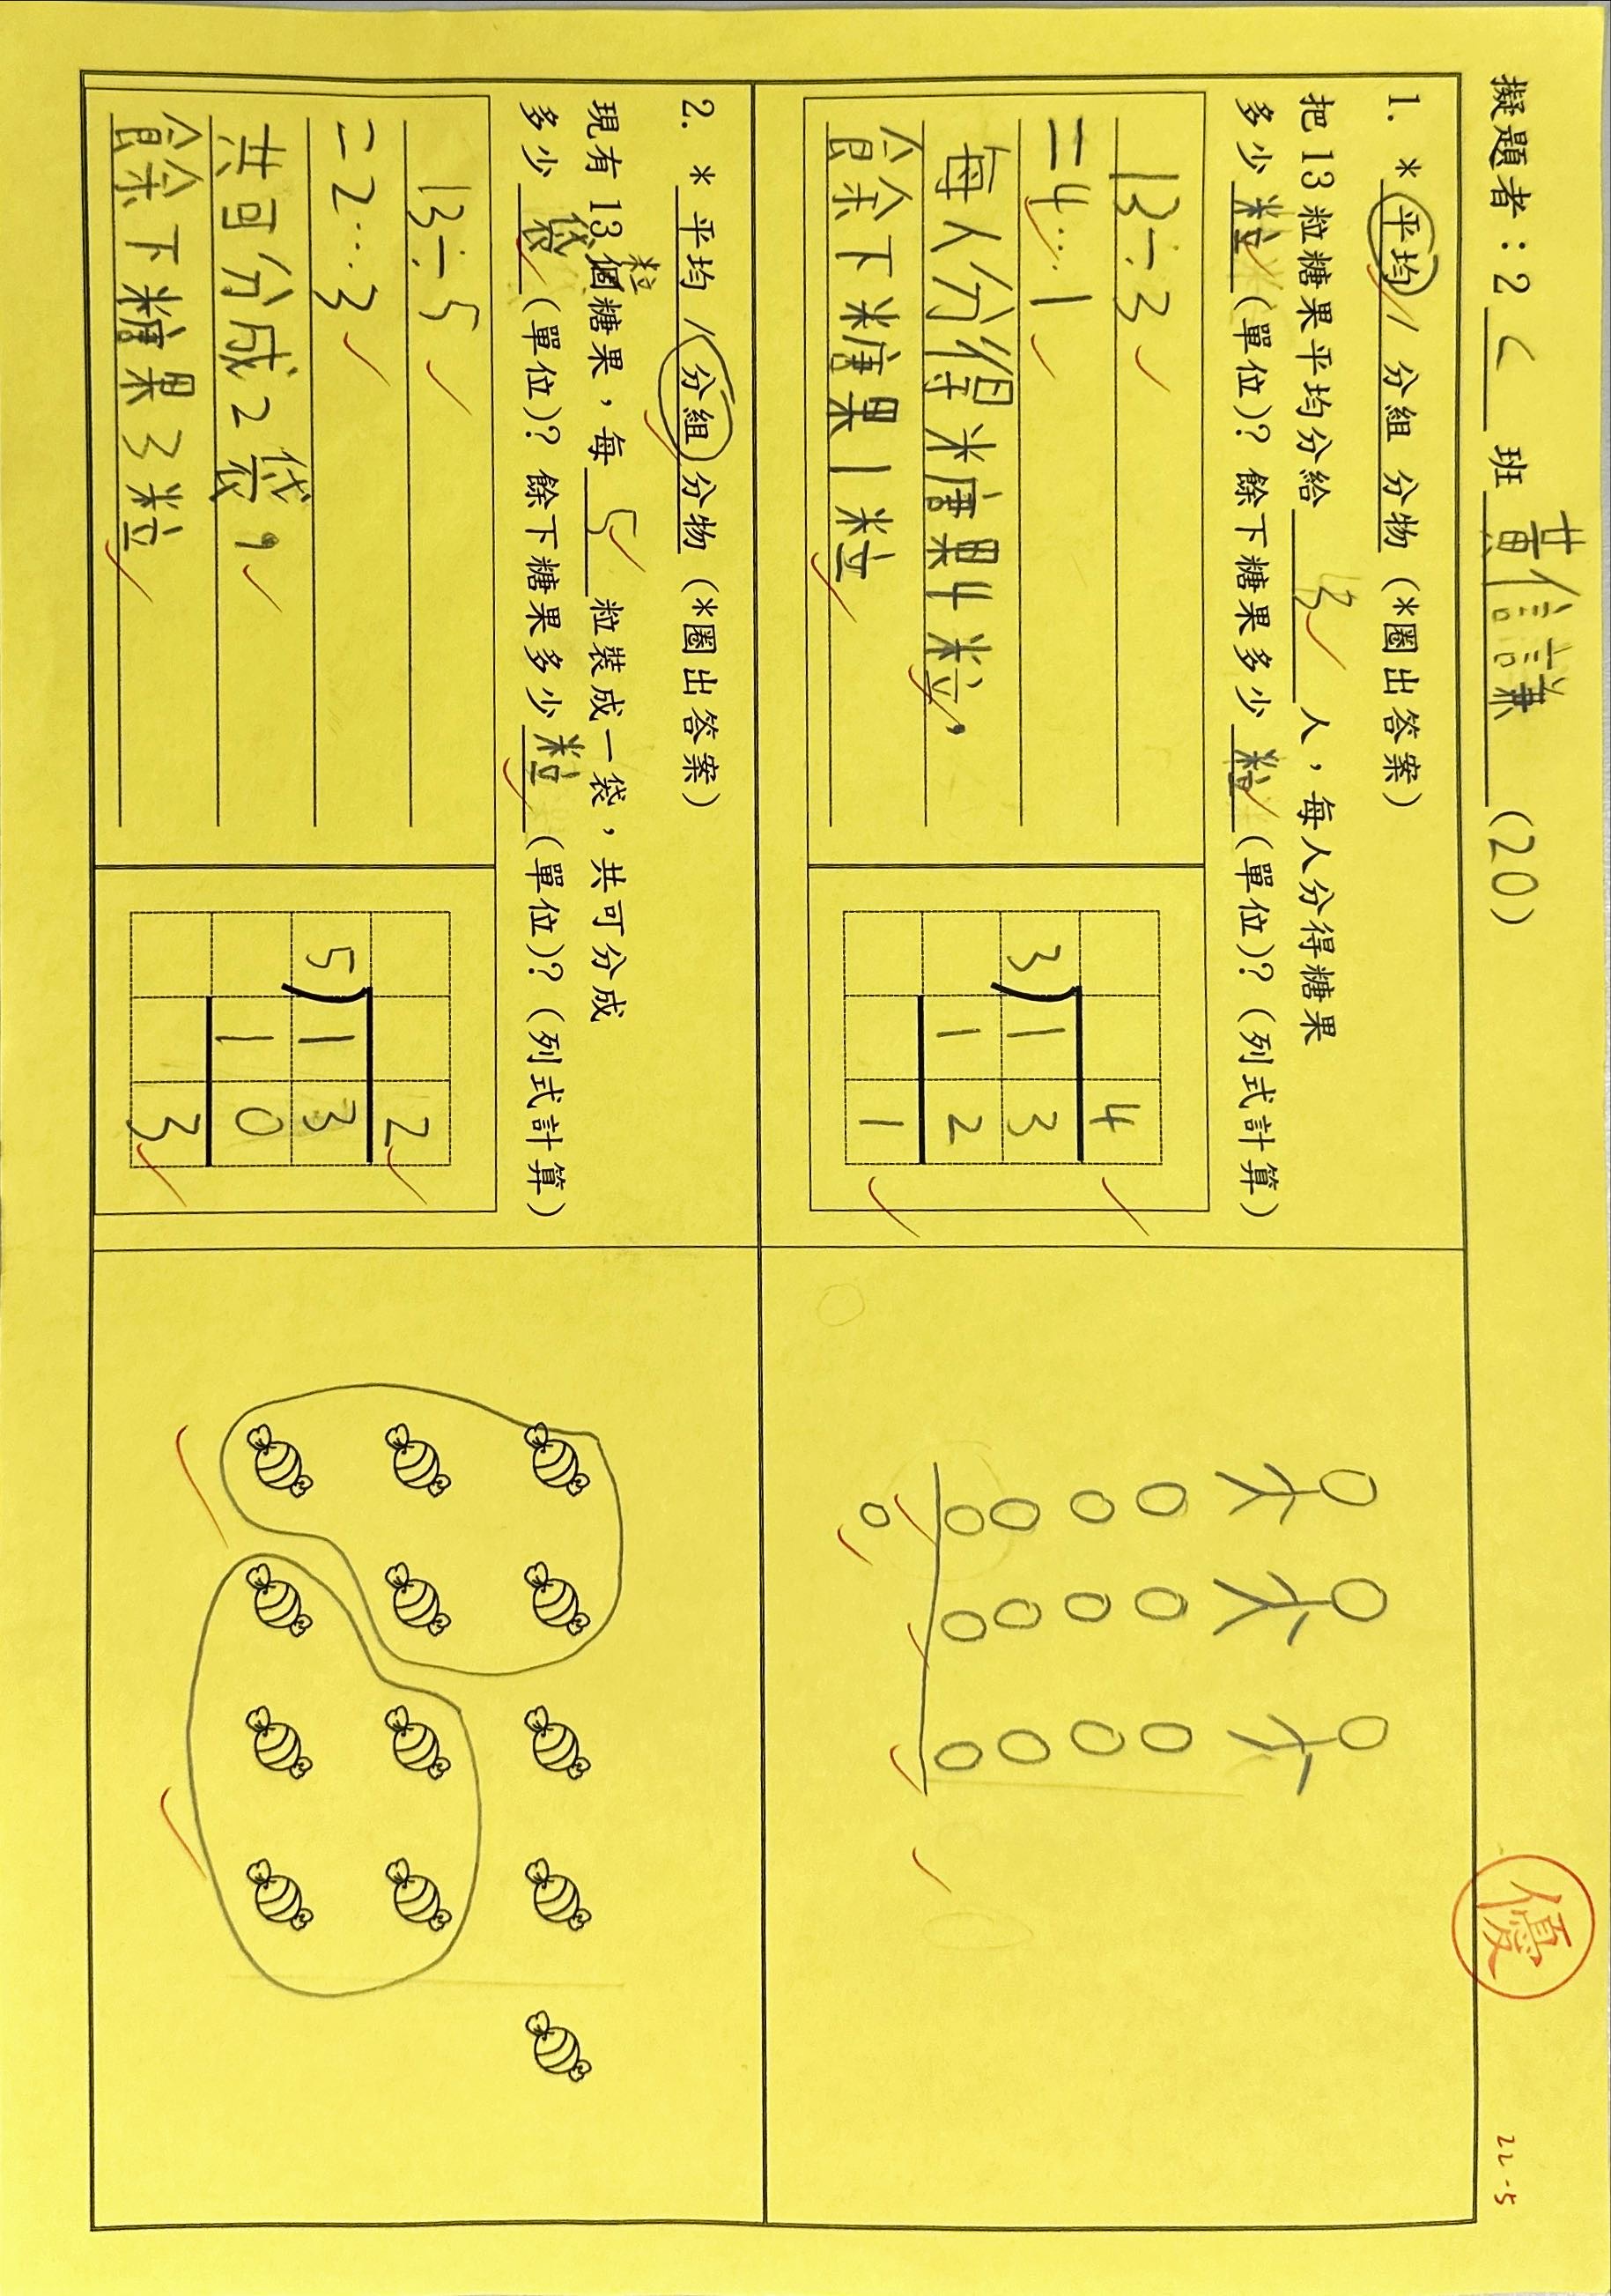 擬題者：2 C 班 黃信謙 (20)
優
22-5
1. * 平均 / 分組 分物 (*圈出答案)
把13粒糖果平均分給 3 人，每人分得糖果
多少 粒 (單位)? 餘下糖果多少 粒 (單位)? (列式計算)
13÷3
=4…1
每人分得糖果4粒，
餘下糖果1粒
4
3 1 3
1 2
1
2. * 平均 / 分組 分物 (*圈出答案)
粒
現有13個糖果，每 5 粒裝成一袋，共可分成
多少 袋 (單位)? 餘下糖果多少 粒 (單位)? (列式計算)
13÷5
=2…3
共可分成2袋，
餘下糖果3粒
2
5 1 3
1 0
3